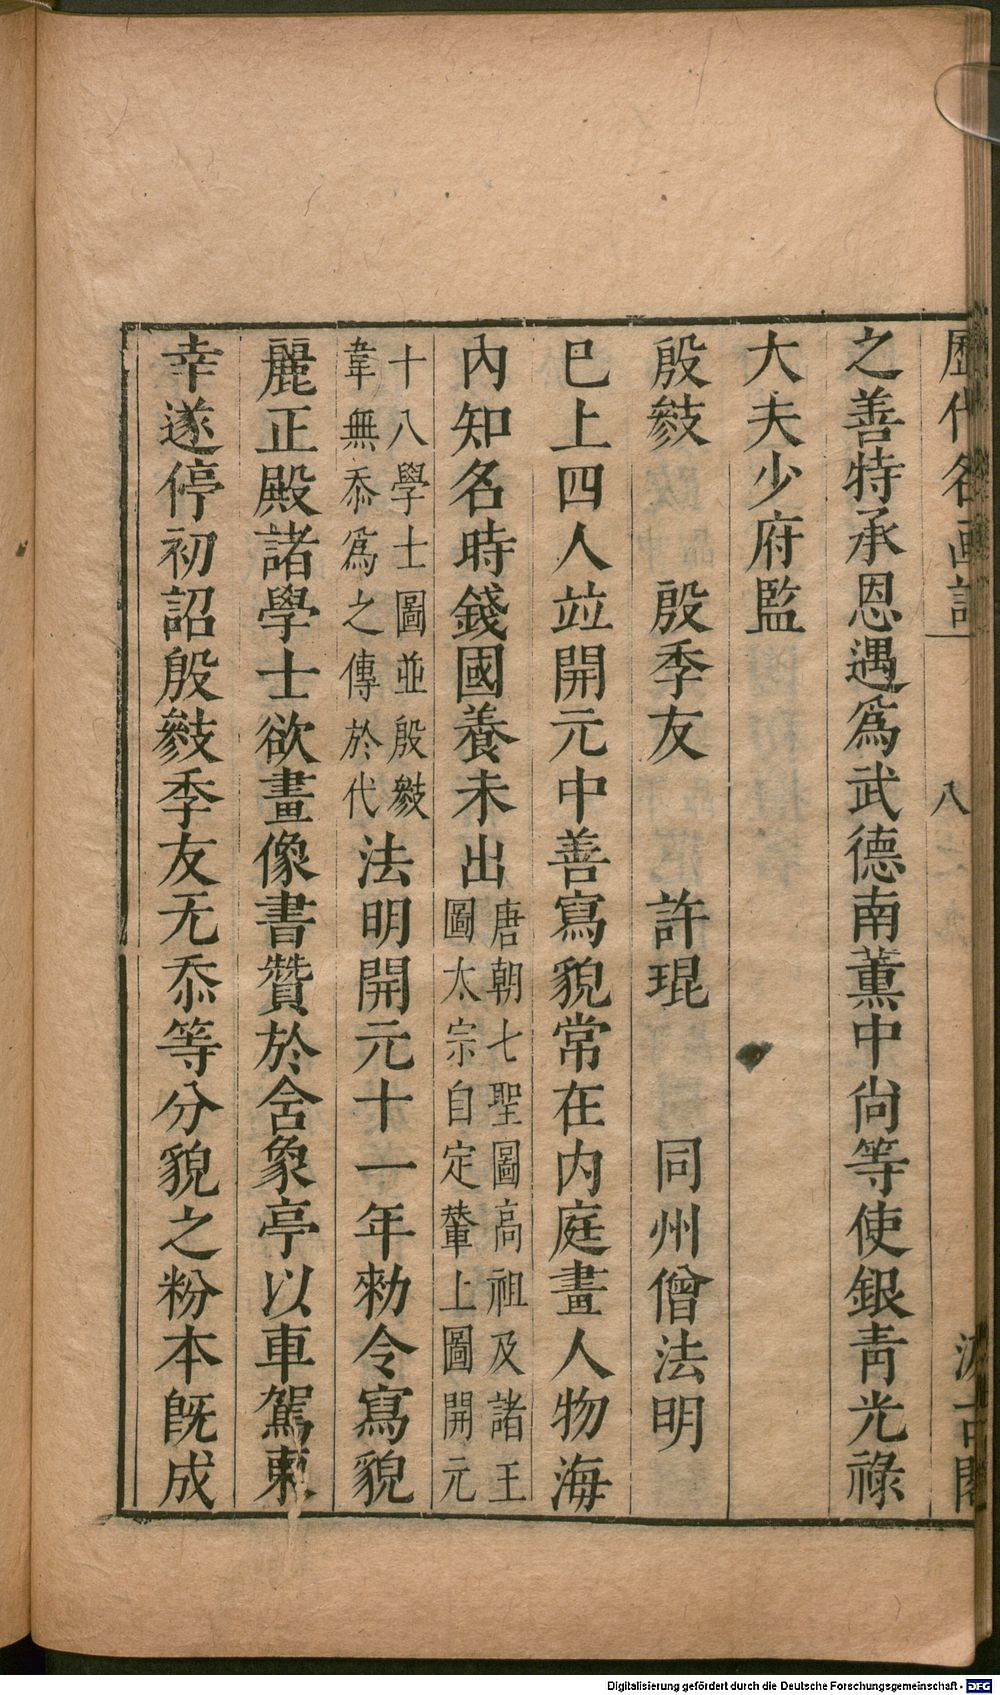 歷代名画記 八 汲古閣
之善特承恩遇爲武德南薰中尙等使銀靑光祿
大夫少府監
殷㪥 殷季友 許琨 同州僧法明
巳上四人竝開元中善寫貌常在內庭畫人物海
內知名時錢國養未出
唐朝七聖圖高祖及諸王
圖太宗自定輦上圖開元
十八學士圖並殷㪥
韋無忝爲之傳於代
法明開元十一年勑令寫貌
麗正殿諸學士欲畫像書贊於含象亭以車駕東
幸遂停初詔殷㪥季友无忝等分貌之粉本旣成
Digitalisierung gefördert durch die Deutsche Forschungsgemeinschaft - DFG